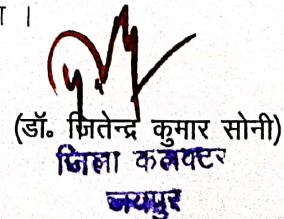 ा ।
(डॉ. जितेन्द्र कुमार सोनी)
जिला कलक्टर
जयपुर